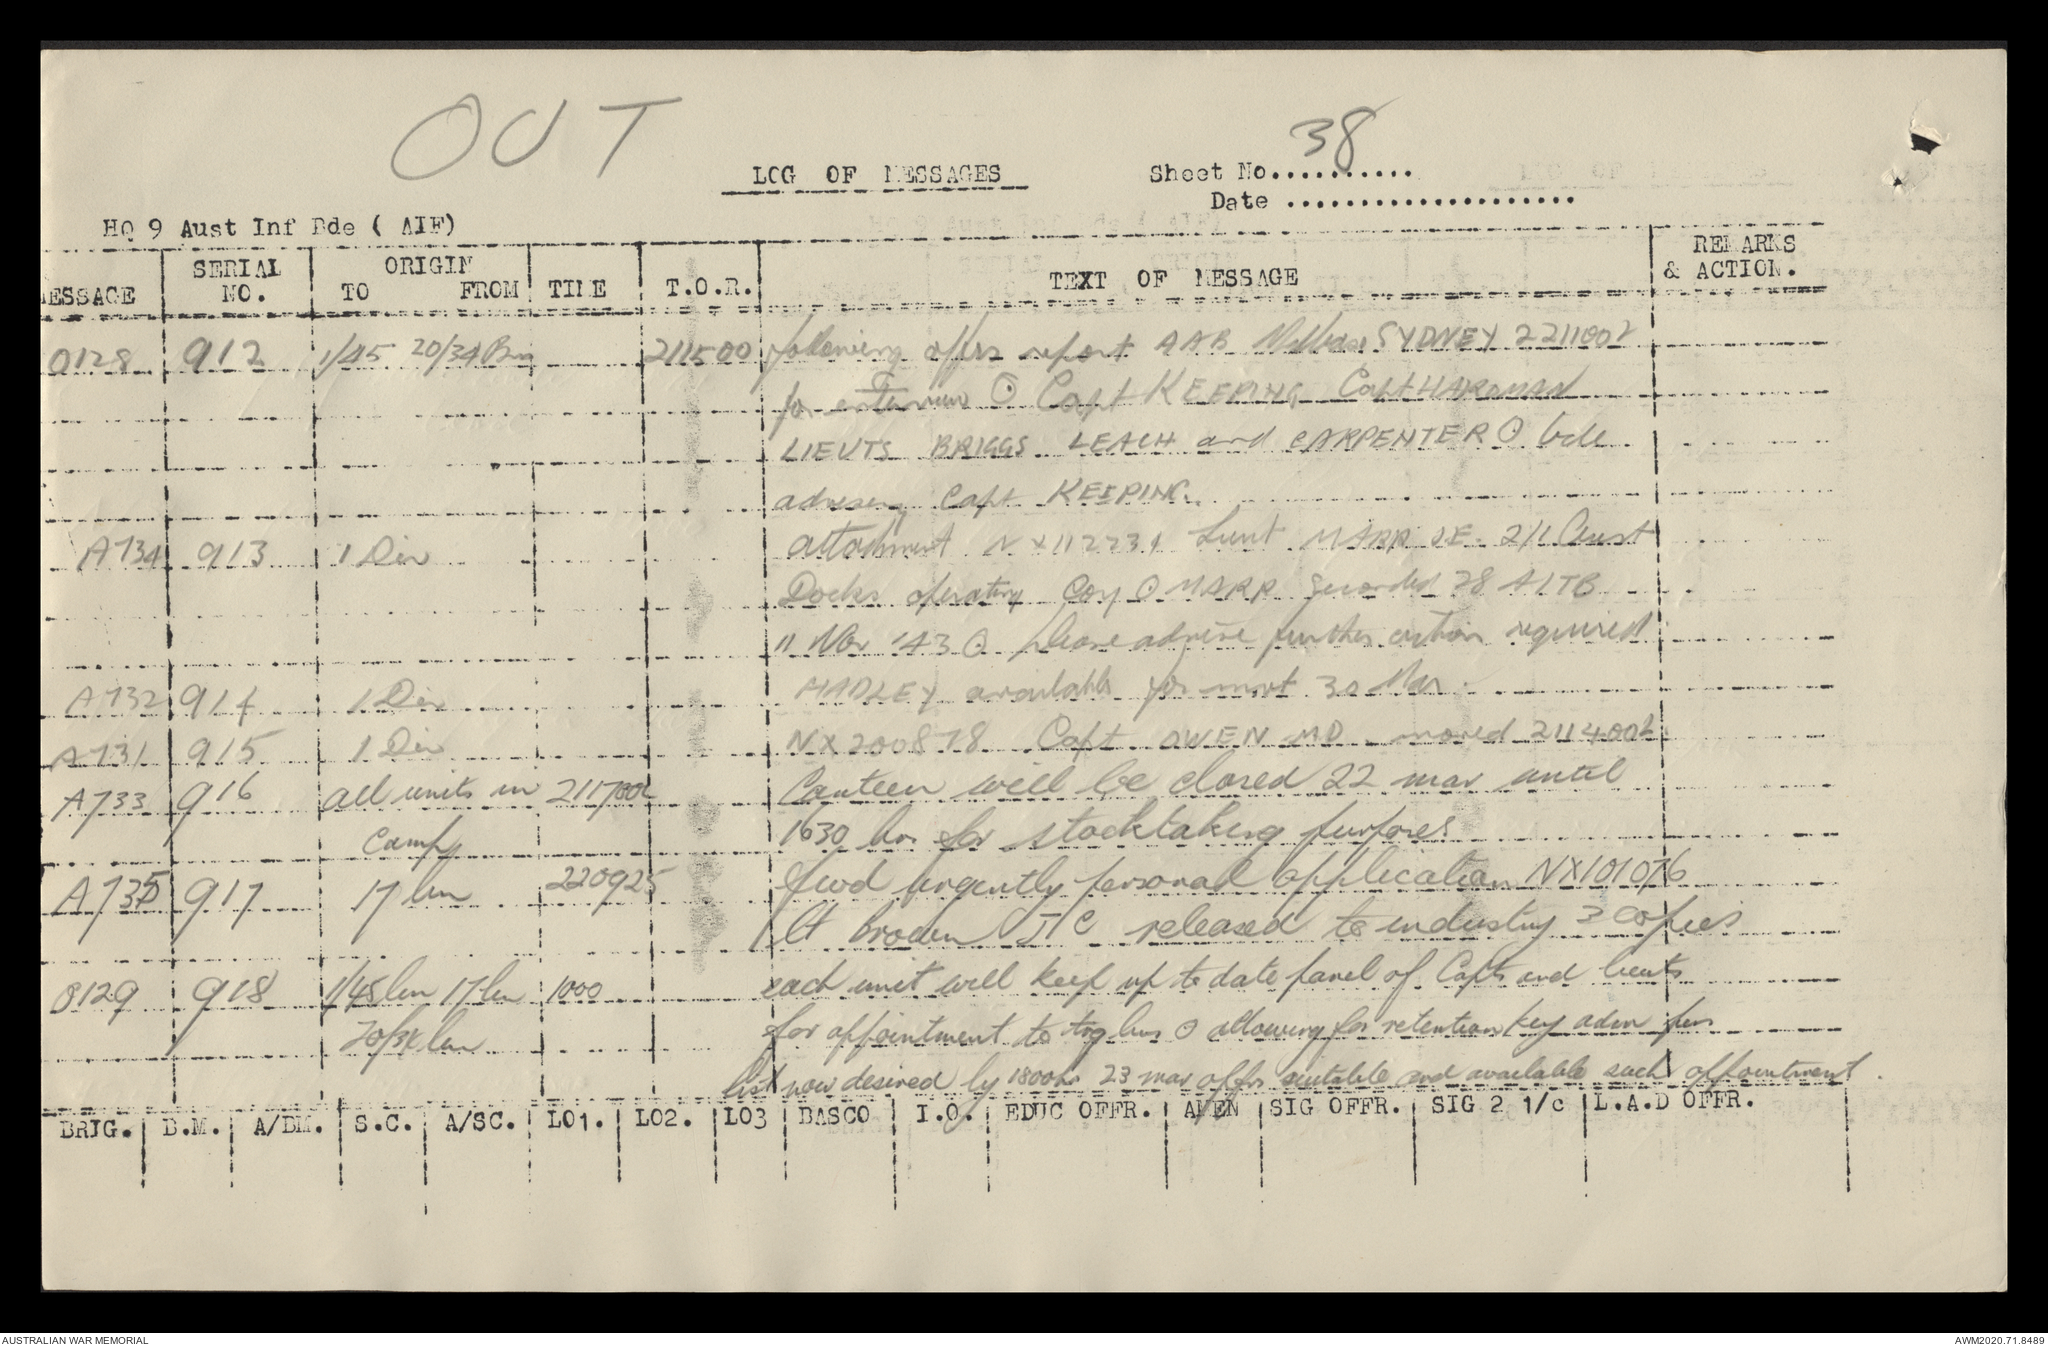 OUT
LOG OF MESSAGES
Sheet No.......... 38
Date .....................
HQ 9 Aust Inf Bde ( AIF)
MESSAGE SERIAL NO. ORIGIN TO FROM TIME T.O.R. TEXT OF MESSAGE REMARKS & ACTION.
0128 912 1/45 20/34 Bn 211500 following offrs report AAB SYDNEY 221100L
for interview ⊙ Capt KEEPING Capt HARDMAN
LIEUTS BRIGGS LEACH and CARPENTER ⊙ bde
advising Capt KEEPING
A734 913 1 Div attachment NX112731 Lieut MARR 2/1 Aust
Docks operating Coy ⊙ MARR seconded 28 AITB
11 Nov '43 ⊙ please advise further action required
A732 914 1 Div HADLEY available for mvt 30 Mar
A731 915 1 Div NX200878 Capt OWEN MD moved 211400L
A733 916 all units in 211700L Canteen will be closed 22 mar until
camp 1630 hrs for stocktaking purposes
A735 917 17 bn 220925 fwd urgently personal application NX101076
Lt broden J C released to industry 3 copies
0129 918 1/45 bn 17 bn 1000 each unit will keep up to date panel of Capts and lieuts
20/34 bn for appointment to trg bns ⊙ allowing for retention key adm pers
list now desired by 1800hrs 23 mar offrs suitable and available such appointment
BRIG. B.M. A/BM. S.C. A/SC. LO1. LO2. LO3 BASCO I.O. EDUC OFFR. AMEN SIG OFFR. SIG 2 1/c L.A.D OFFR.
AUSTRALIAN WAR MEMORIAL AWM2020.71.8489